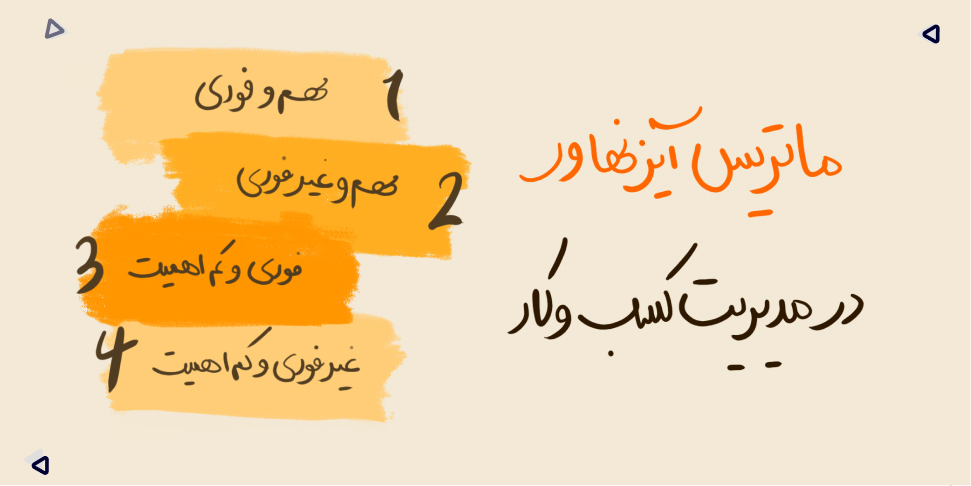 ماتریس آیزنهاور
در مدیریت کسب و کار
1 مهم و فوری
2 مهم و غیر فوری
3 فوری و کم اهمیت
4 غیر فوری و کم اهمیت